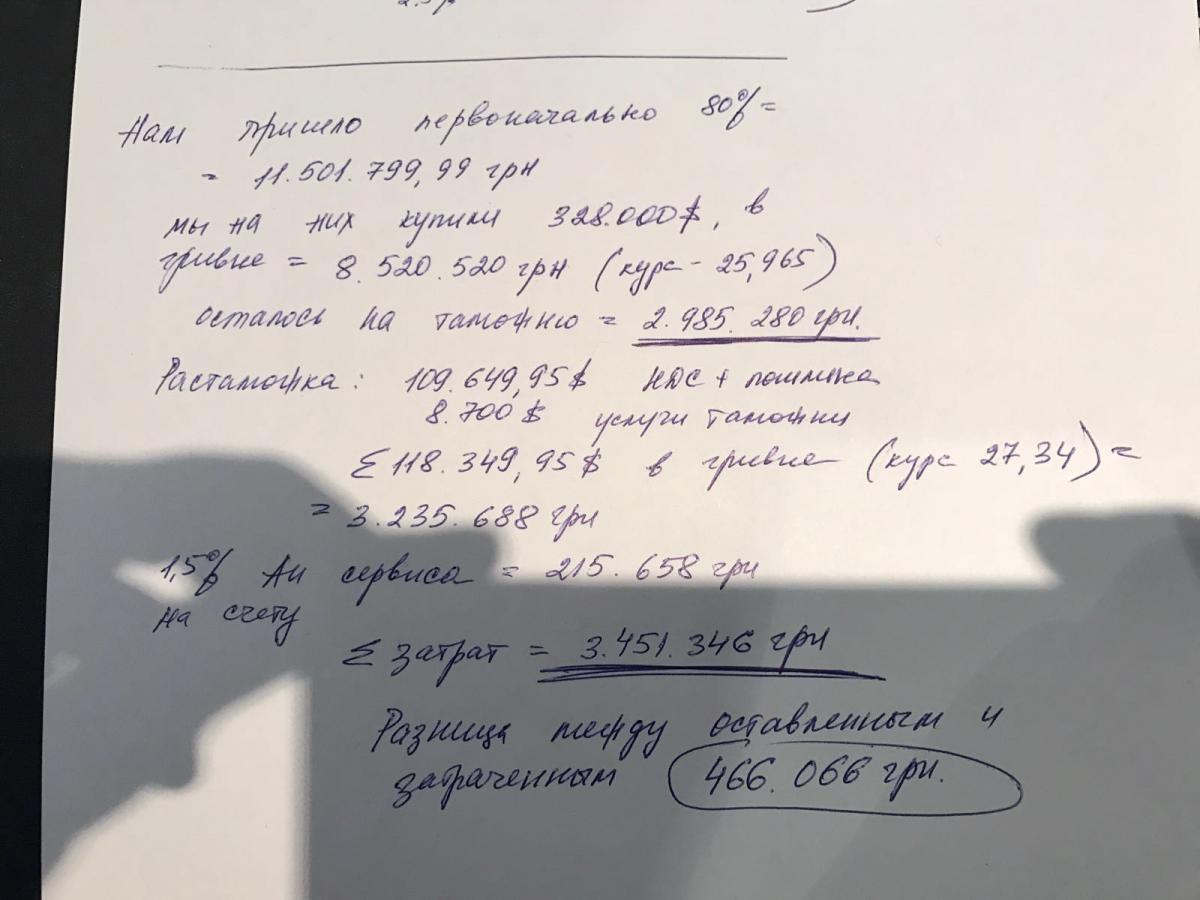 Нам пришло первоначально 80% =
= 11.501.799,99 грн
мы на них купили 328.000$, в
гривне = 8.520.520 грн (курс - 25,965)
осталось на таможню = 2.985.280 грн.
Растаможка: 109.649,95$ НДС + пошлина
8.700$ услуги таможни
Σ 118.349,95$ в гривне (курс 27,34) =
= 3.235.688 грн
1,5% Ай сервиса = 215.658 грн
на счету
Σ затрат = 3.451.346 грн
Разница между оставленным и
затраченным 466.066 грн.